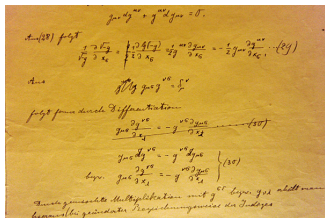 g_{μν} dg^{μν} + g^{μν} dg_{μν} = 0.
Aus (28) folgt
1/√g ∂√g/∂x_σ = 1/2 ∂lg(-g)/∂x_σ = 1/2 g^{μν} ∂g_{μν}/∂x_σ = -1/2 g_{μν} ∂g^{μν}/∂x_σ. ...(29)
Aus
g_{μσ} g^{νσ} = δ_μ^ν
folgt ferner durch Differentiation
g_{μσ} ∂g^{νσ}/∂x_λ = - g^{νσ} ∂g_{μσ}/∂x_λ ...(30)
g_{μσ} dg^{νσ} = - g^{νσ} dg_{μσ}
bezw. g_{μσ} ∂g^{νσ}/∂x_λ = - g^{νσ} ∂g_{μσ}/∂x_λ } (30)
Durch gemischte Multiplikation mit bezw. g_{νλ} erhält man
hieraus bei geänderter Bezeichnungsweise der Indizes